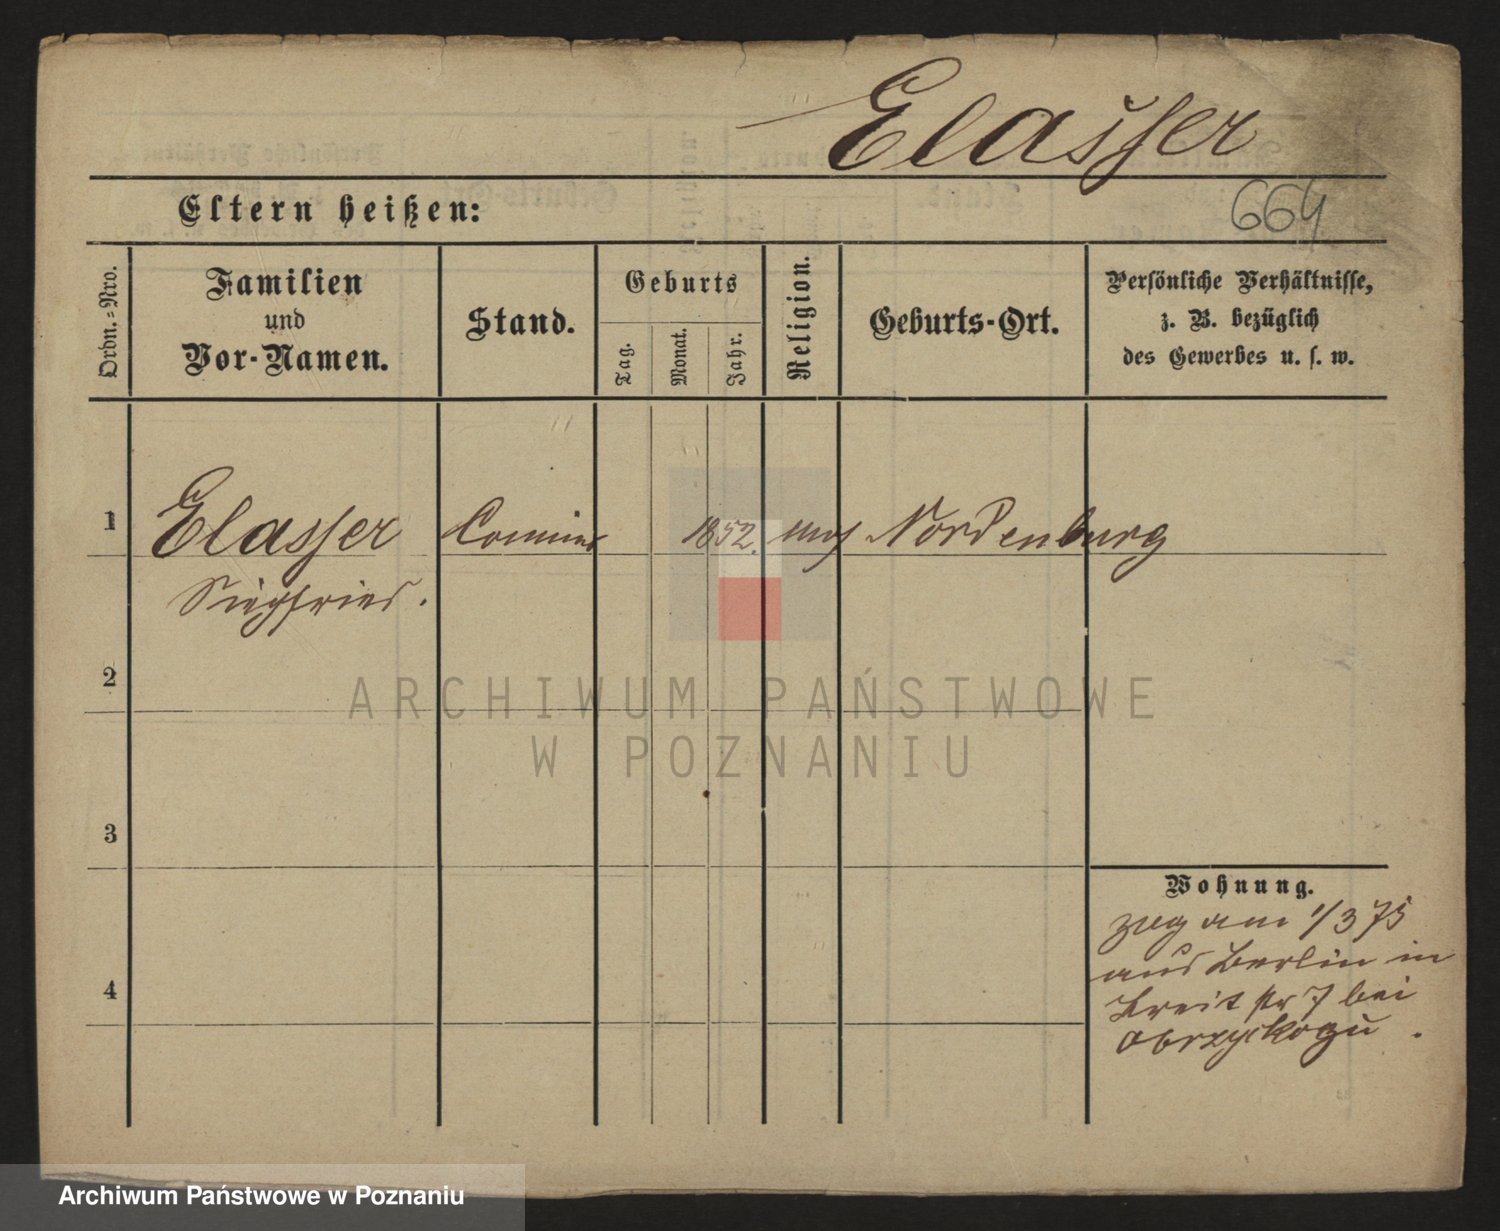 Elasser
664
Eltern heißen:
Ordn.-Nro.
Familien
und
Vor-Namen.
Stand.
Geburts
Tag.
Monat.
Jahr.
Religion.
Geburts-Ort.
Persönliche Verhältnisse,
z. B. bezüglich
des Gewerbes u. s. w.
1
Elasser
Siegfried.
Commis
1852.
mos
Nordenburg
2
3
4
Wohnung.
zug am 1/3 75
aus Berlin in
Breitstr 7 bei
ARCHIWUM PAŃSTWOWE
W POZNANIU
Archiwum Państwowe w Poznaniu